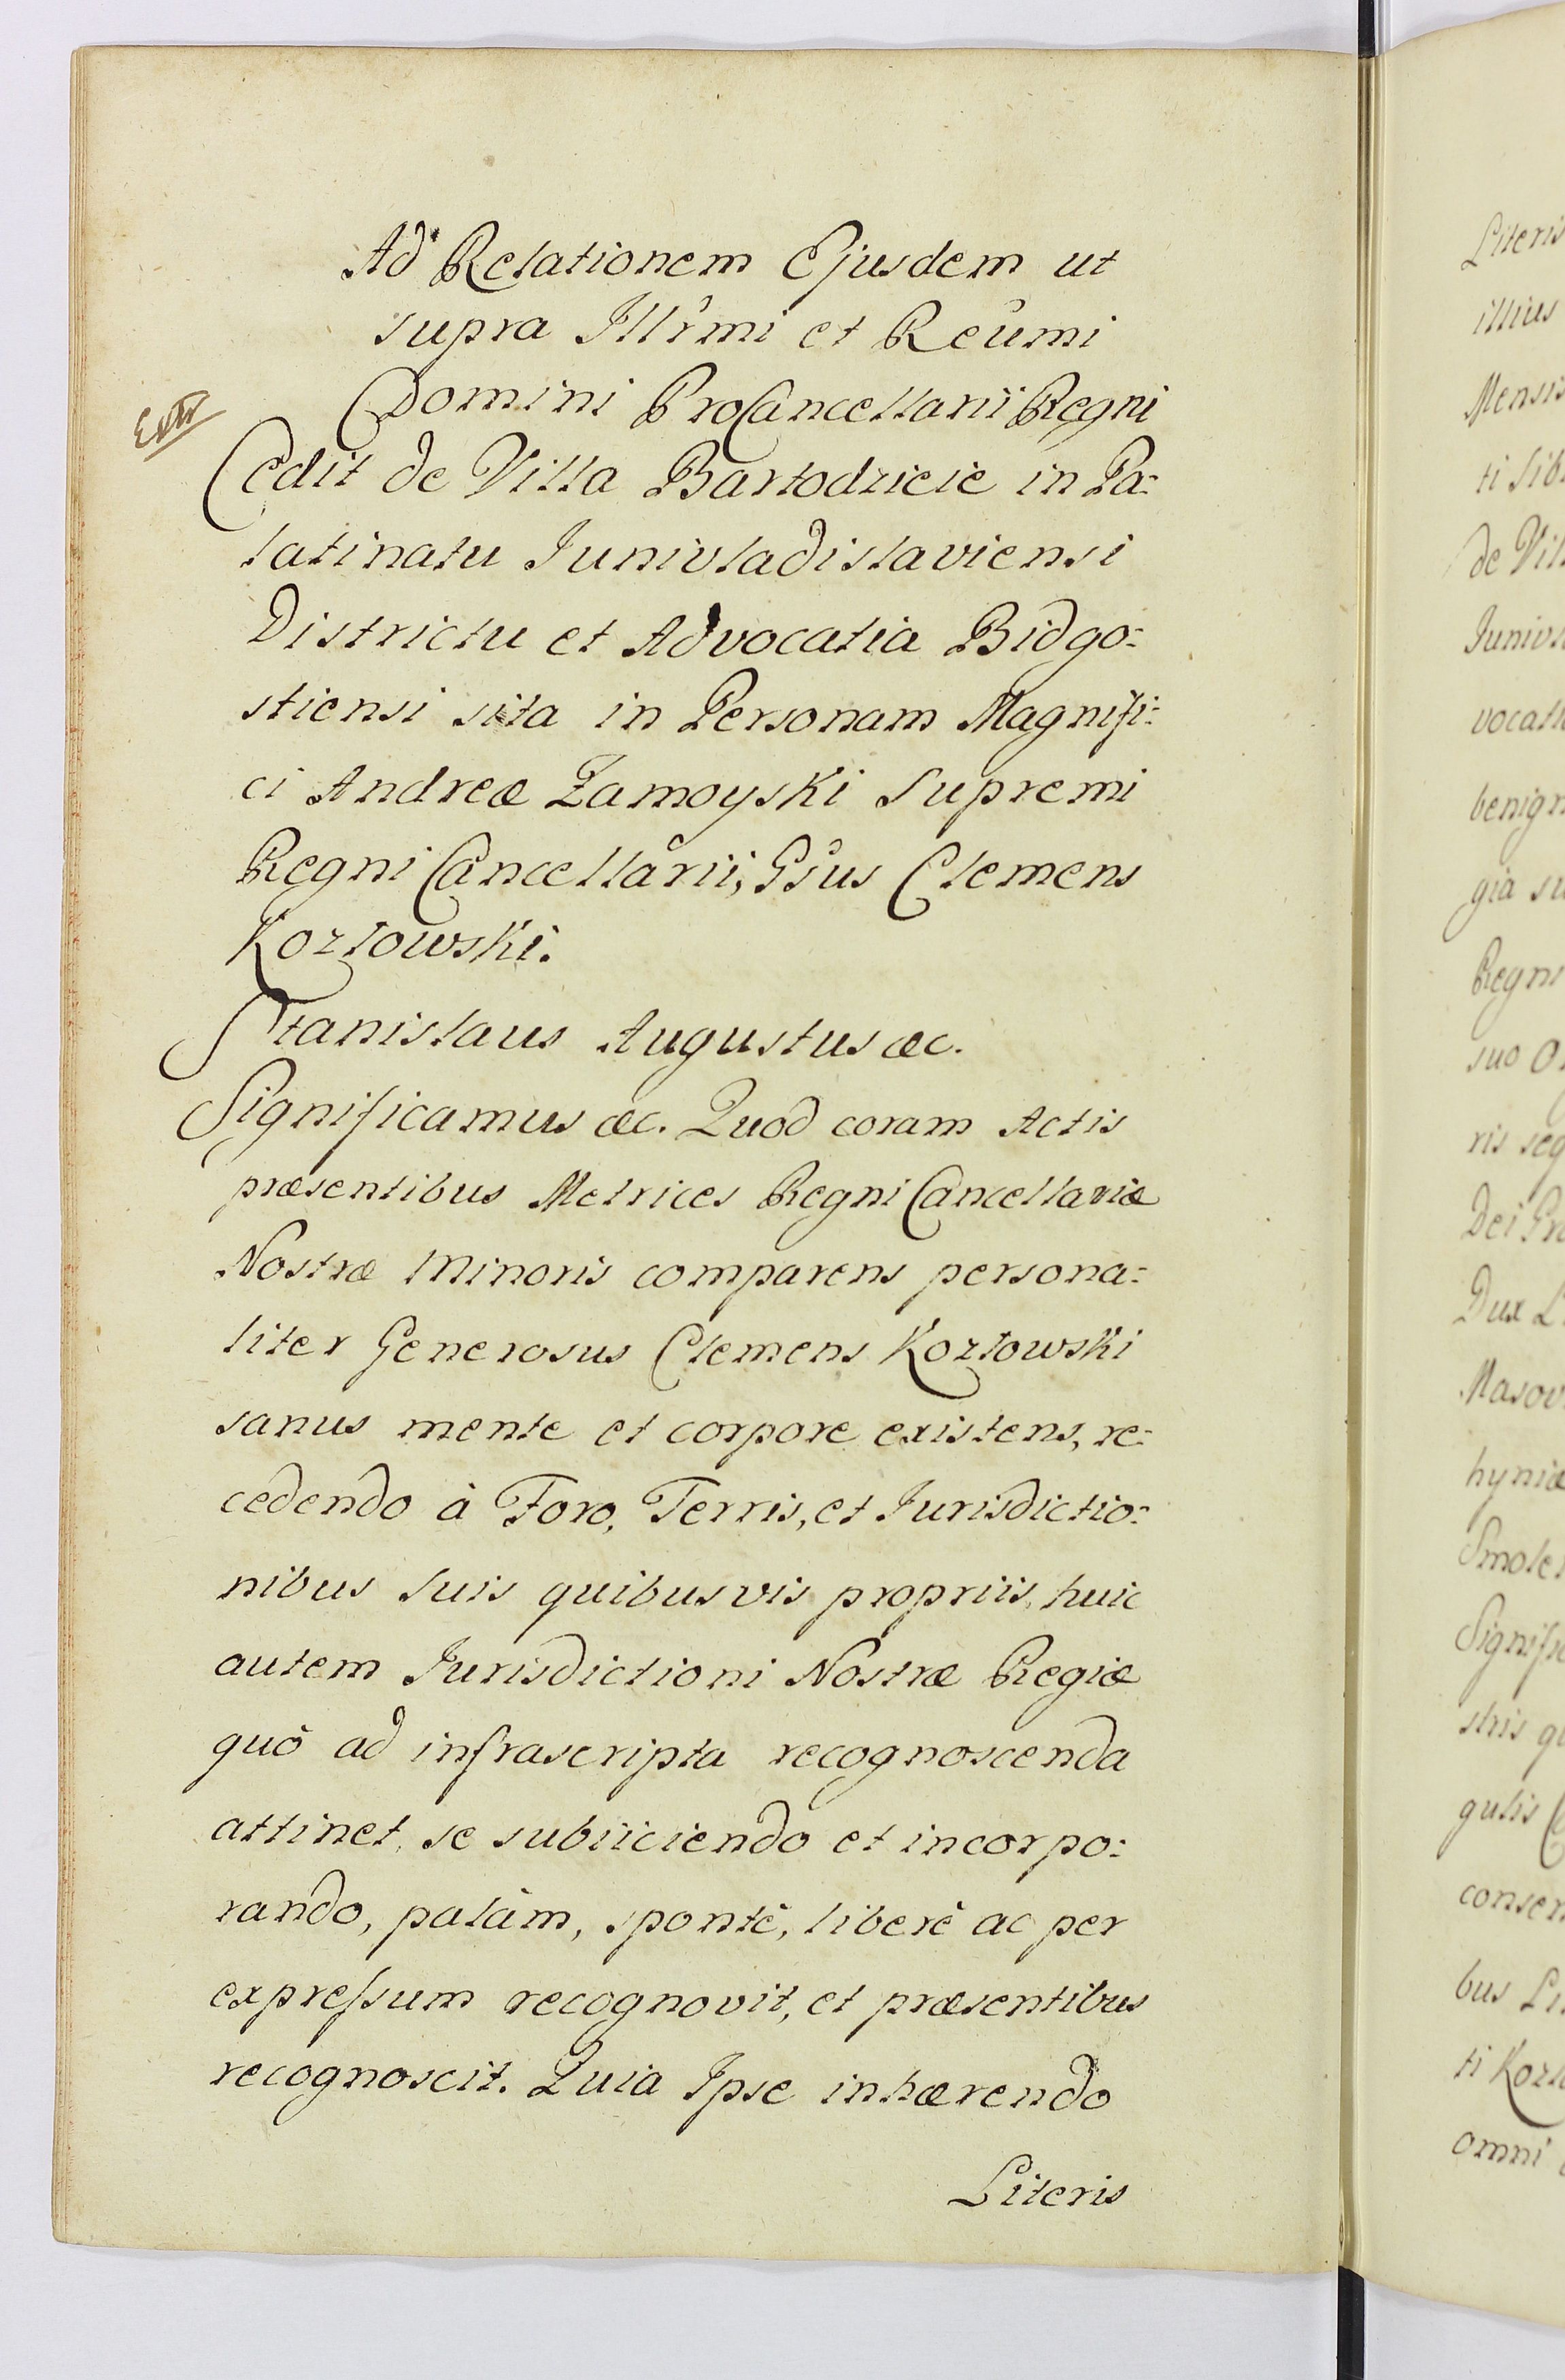 Ad Relationem Ejusdem ut
supra Illr̂mi et Reûmi
Domini ProCancellarii Regni
Cedit de Villa Bartodzieie in Pa:
latinatu Junivladislaviensi
Districtu et Advocatia Bidgo:
stiensi sita in Personam Magnifi:
ci Andreæ Zamoyski Supremi
Regni Cancellarii, Gsûs Clemens
Kozłowski.
Stanislaus Augustus &c.
Significamus &c. Quod coram Actis
præsentibus Metrices Regni Cancellariæ
Nostræ Minoris comparens persona:
liter Generosus Clemens Kozłowski
sanus mente et corpore existens, re:
cedendo à Foro, Terris, et Jurisdictio:
nibus Suis quibusvis propriis, huic
autem Jurisdictioni Nostræ Regiæ
quò ad infrascripta recognoscenda
attinet, se subiiciendo et incorpo:
rando, palàm, spontè, liberè ac per
expreſsum recognovit, et præsentibus
recognoscit. Quia Ipse inhærendo
Literis
Literis
illius
Mensis
ti Sib
de Vil
Junivl
vocati
benign
gia su
Regni
suo O
ris seq
Dei Gra
Dux L
Masov
hyniæ
Smole
Signifi
stris q
gulis C
consen
bus Li
ti Kozł
omni